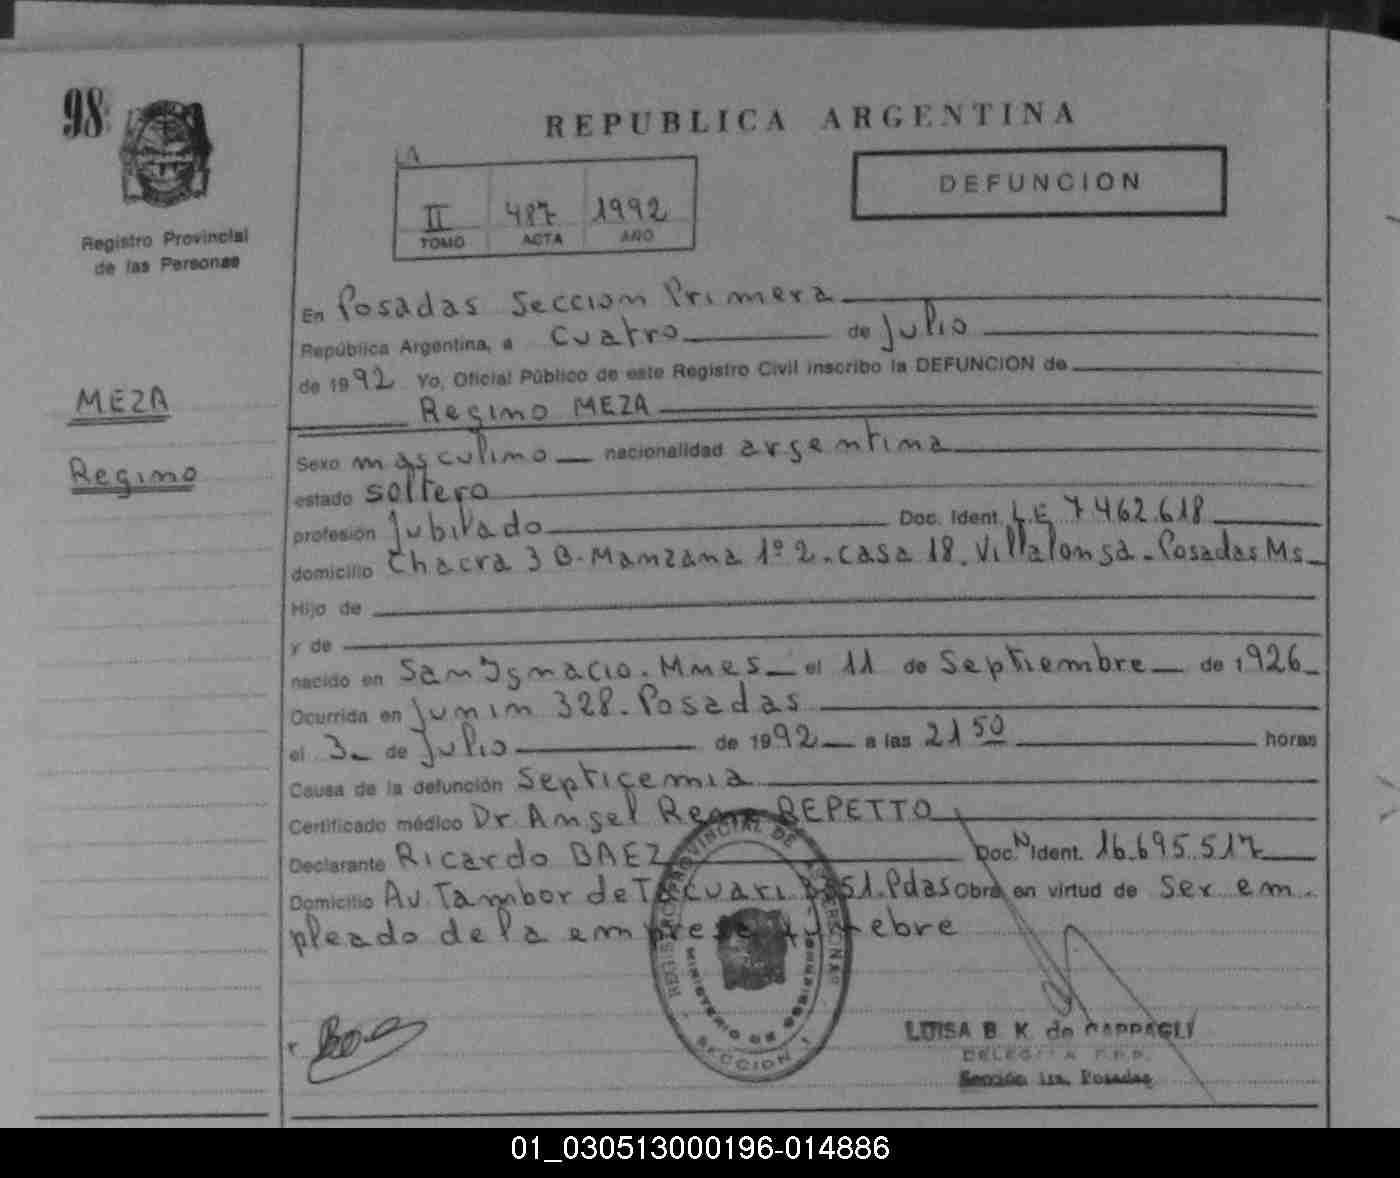 98
Registro Provincial
de las Personas
MEZA
Regino
REPUBLICA ARGENTINA
DEFUNCION
II 487 1992
TOMO ACTA AÑO
En Posadas Seccion Primera
República Argentina, a cuatro de Julio
de 1992 Yo, Oficial Público de este Registro Civil inscribo la DEFUNCION de
Regino MEZA
Sexo masculino nacionalidad argentina
estado soltero
profesión Jubilado Doc. Ident. L.E 7.462.618
domicilio Chacra 3 B. Manzana 1º 2. casa 18. Villalonga - Posadas Ms
Hijo de
y de
nacido en San Ignacio. Mnes el 11 de Septiembre de 1926
Ocurrida en Junin 328. Posadas
el 3 de Julio de 1992 a las 21 50 horas
Causa de la defunción Septicemia
Certificado médico Dr Angel REPETTO
Declarante Ricardo BAEZ Doc. N Ident. 16.695.517
Domicilio Av. Tambor de Tacuari Pdas Obra en virtud de ser em
pleado de la empresa funebre
REGISTRO PROVINCIAL DE LAS PERSONAS
MINISTERIO DE GOBIERNO
SECCION 1
LUISA B. K. de CAPPAGLI
DELEGADA
Sección 1ra. Posadas
01_030513000196-014886